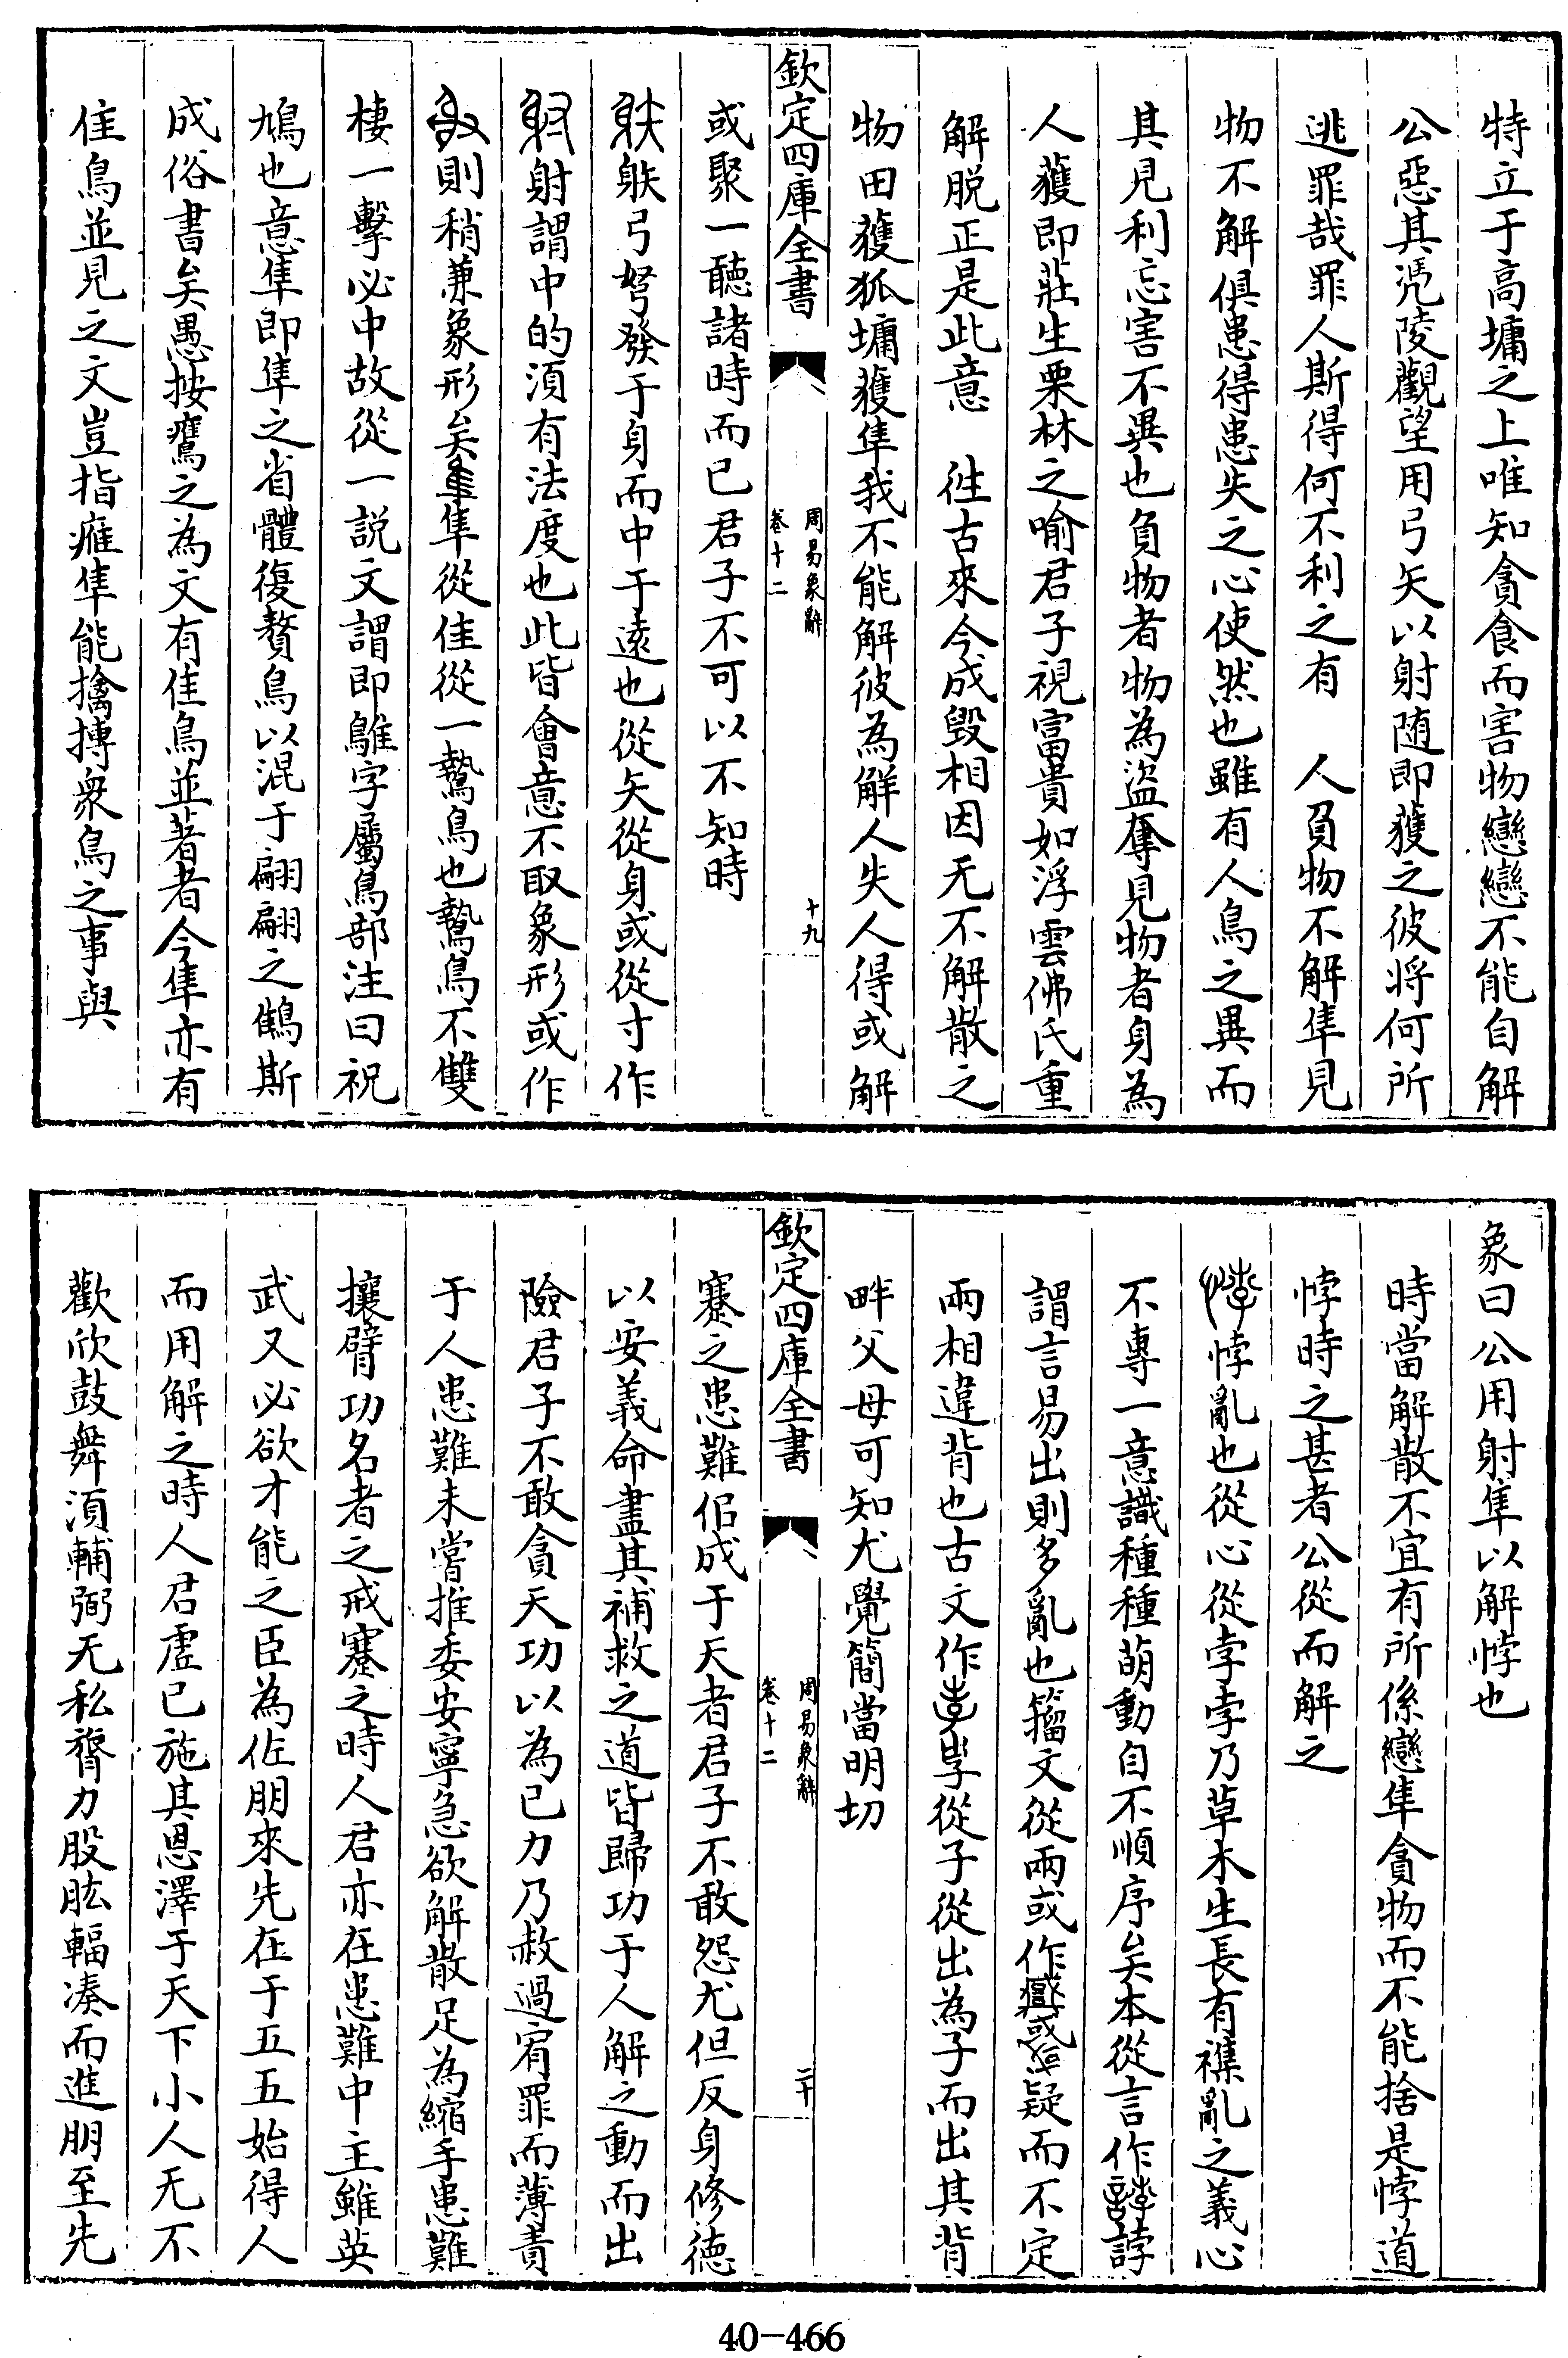 特立于高墉之上唯知貪食而害物戀戀不能自解
公惡其凴陵觀望用弓矢以射随即獲之彼将何所
逃罪哉罪人斯得何不利之有　人負物不解隼見
物不解俱患得患失之心使然也雖有人鳥之異而
其見利忘害不異也負物者物為盜奪見物者身為
人獲即莊生栗林之喻君子視富貴如浮雲佛氏重
解脱正是此意　徃古來今成毁相因无不解散之
物田獲狐墉獲隼我不能解彼為解人失人得或解
欽定四庫全書
周易象辭
卷十二
十九
或聚一聽諸時而已君子不可以不知時
躲弓弩發于身而中于遠也從矢從身或從寸作
射謂中的須有法度也此皆會意不取象形或作
則稍兼象形矣隼從隹從一鷙鳥也鷙鳥不雙
棲一擊必中故從一説文謂即鵻字屬鳥部注曰祝
鳩也意隼即隼之省體復贅鳥以混于翩翩之鵻斯
成俗書矣愚按鷹之為文有隹鳥並著者今隼亦有
隹鳥並見之文豈指雁隼能擒搏衆鳥之事與
象曰公用射隼以解悖也
時當解散不宜有所係戀隼貪物而不能捨是悖道
悖時之甚者公從而解之
悖亂也從心從孛孛乃草木生長有襍亂之義心
不專一意識種種萌動自不順序矣本從言作誖
謂言易出則多亂也籀文從兩或作疑而不定
兩相違背也古文作孛從子從出為子而出其背
畔父母可知尤覺簡當明切
欽定四庫全書
周易象辭
卷十二
二十
蹇之患難佀成于天者君子不敢怨尤但反身修德
以安義命盡其補救之道皆歸功于人解之動而出
險君子不敢貪天功以為己力乃赦過宥罪而薄責
于人患難未嘗推委安寧急欲解散足為縮手患難
攘臂功名者之戒蹇之時人君亦在患難中主雖英
武又必欲才能之臣為佐朋來先在于五五始得人
而用解之時人君虛已施其恩澤于天下小人无不
歡欣鼓舞須輔弼无私膂力股肱輻湊而進朋至先
40-466